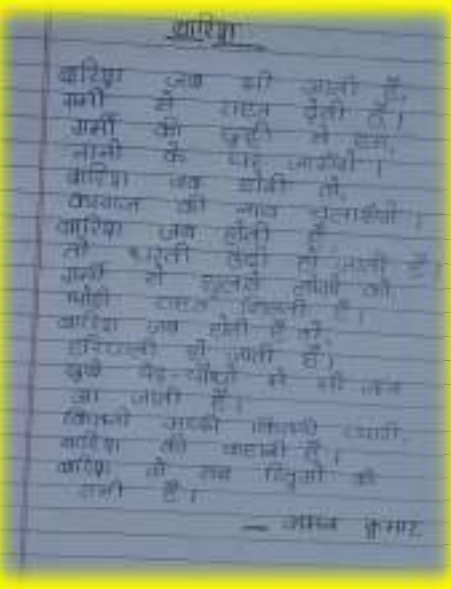 बारिश
बारिश जब भी आती है,
गर्मी से राहत देती है।
गर्मी की छुट्टी में हम,
नानी के घर जायेंगे।
बारिश जब होगी तो,
कागज की नाव चलायेंगे।
बारिश जब होती है,
तो धरती ठंडी हो जाती है।
गर्मी से झुलसे लोगों को,
थोड़ी राहत मिलती है।
बारिश जब होती है तो,
हरियाली हो जाती है।
सूखे पेड़-पौधों में भी जान
आ जाती है।
कितनी अच्छी कितनी प्यारी,
बारिश की कहानी है।
बारिश तो सब रितुओं की
रानी है।
— कुमार